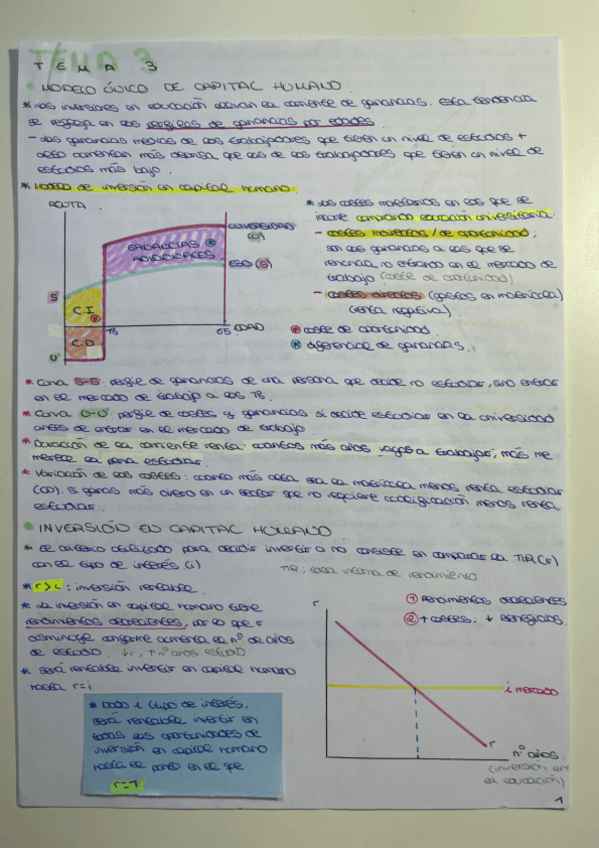 TEMA 3
TEMA 3
MODELO ÚNICO DE CAPITAL HUMANO
* Las inversiones en educación elevan la corriente de ganancias. Esta tendencia
se refleja en los perfiles de ganancias por edades
- Las ganancias medias de los trabajadores que tienen un nivel de estudios +
alto aumentan más deprisa que las de los trabajadores que tienen un nivel de
estudios más bajo.
* Modelo de inversión en capital humano
RENTA
UNIVERSIDAD
(U)
GANANCIAS *
ADICIONALES
ESO (S)
S
C.I
18
65
EDAD
C.D
U
* Los costes monetarios en los que se
incurre comprando educación universitaria:
- costes indirectos / de oportunidad;
son las ganancias a las que se
renuncia no estando en el mercado de
trabajo (coste de oportunidad)
- costes directos (gastos en matrícula)
(renta negativa)
coste de oportunidad
diferencial de ganancias.
* Curva S-S: perfil de ganancias de una persona que decide no estudiar, sino entrar
en el mercado de trabajo a los 18.
* Curva U-U: perfil de costes y ganancias si decide estudiar en la universidad
antes de entrar en el mercado de trabajo
* Duración de la corriente renta: cuantos más años vayas a trabajar, más me
merece la pena estudiar
* Variación de los costes: cuanto más alta sea la matrícula menos renta estudiar
(CD). Si ganas más dinero en un sector que no requiere cualificación menos renta
estudiar.
INVERSIÓN EN CAPITAL HUMANO
* El criterio utilizado para decidir invertir o no consiste en comparar la TIR (r)
con el tipo de interés (i)
TIR: tasa interna de rendimiento
* r > i : inversión rentable
* La inversión en capital humano tiene
rendimientos decrecientes, por lo que r
disminuye conforme aumenta el nº de años
de estudio. ↓r, ↑nº años estudio
* Será rentable invertir en capital humano
hasta r=i
* Dado i (tipo de interés),
será rentable invertir en
todas las oportunidades de
inversión en capital humano
hasta el punto en el que
r
1 Rendimientos decrecientes
2 + costes, ↓ beneficios
i mercado
r
nº años
(inversión en
la educación)
1